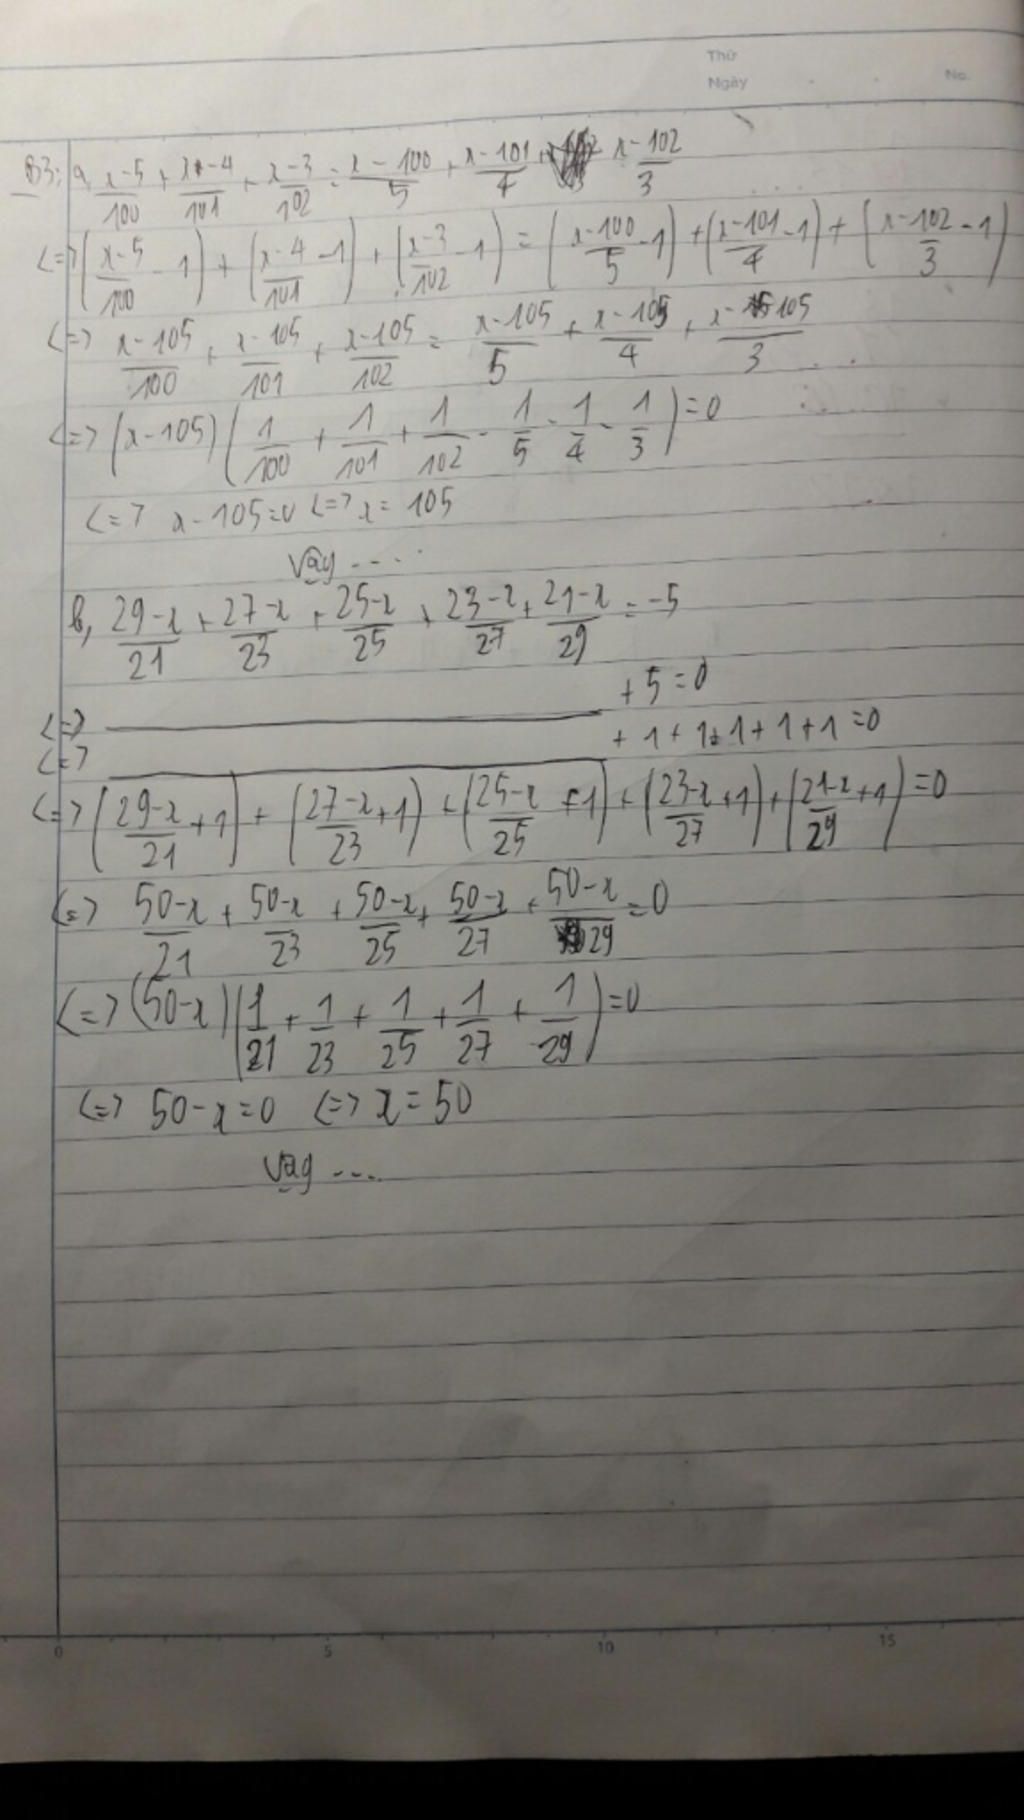 Thứ
Ngày No.
B3: a, x-5/100 + x-4/101 + x-3/102 = x-100/5 + x-101/4 + x-102/3
<=> (x-5/100 - 1) + (x-4/101 - 1) + (x-3/102 - 1) = (x-100/5 - 1) + (x-101/4 - 1) + (x-102/3 - 1)
<=> x-105/100 + x-105/101 + x-105/102 = x-105/5 + x-105/4 + x-105/3
<=> (x-105) (1/100 + 1/101 + 1/102 - 1/5 - 1/4 - 1/3) = 0
<=> x-105=0 <=> x = 105
Vậy ....
b, 29-x/21 + 27-x/23 + 25-x/25 + 23-x/27 + 21-x/29 = -5
<=> ———— + 5 = 0
<=> ———— + 1 + 1 + 1 + 1 + 1 = 0
<=> (29-x/21 + 1) + (27-x/23 + 1) + (25-x/25 + 1) + (23-x/27 + 1) + (21-x/29 + 1) = 0
<=> 50-x/21 + 50-x/23 + 50-x/25 + 50-x/27 + 50-x/29 = 0
<=> (50-x) (1/21 + 1/23 + 1/25 + 1/27 + 1/29) = 0
<=> 50-x=0 <=> x = 50
Vậy ....
0 5 10 15